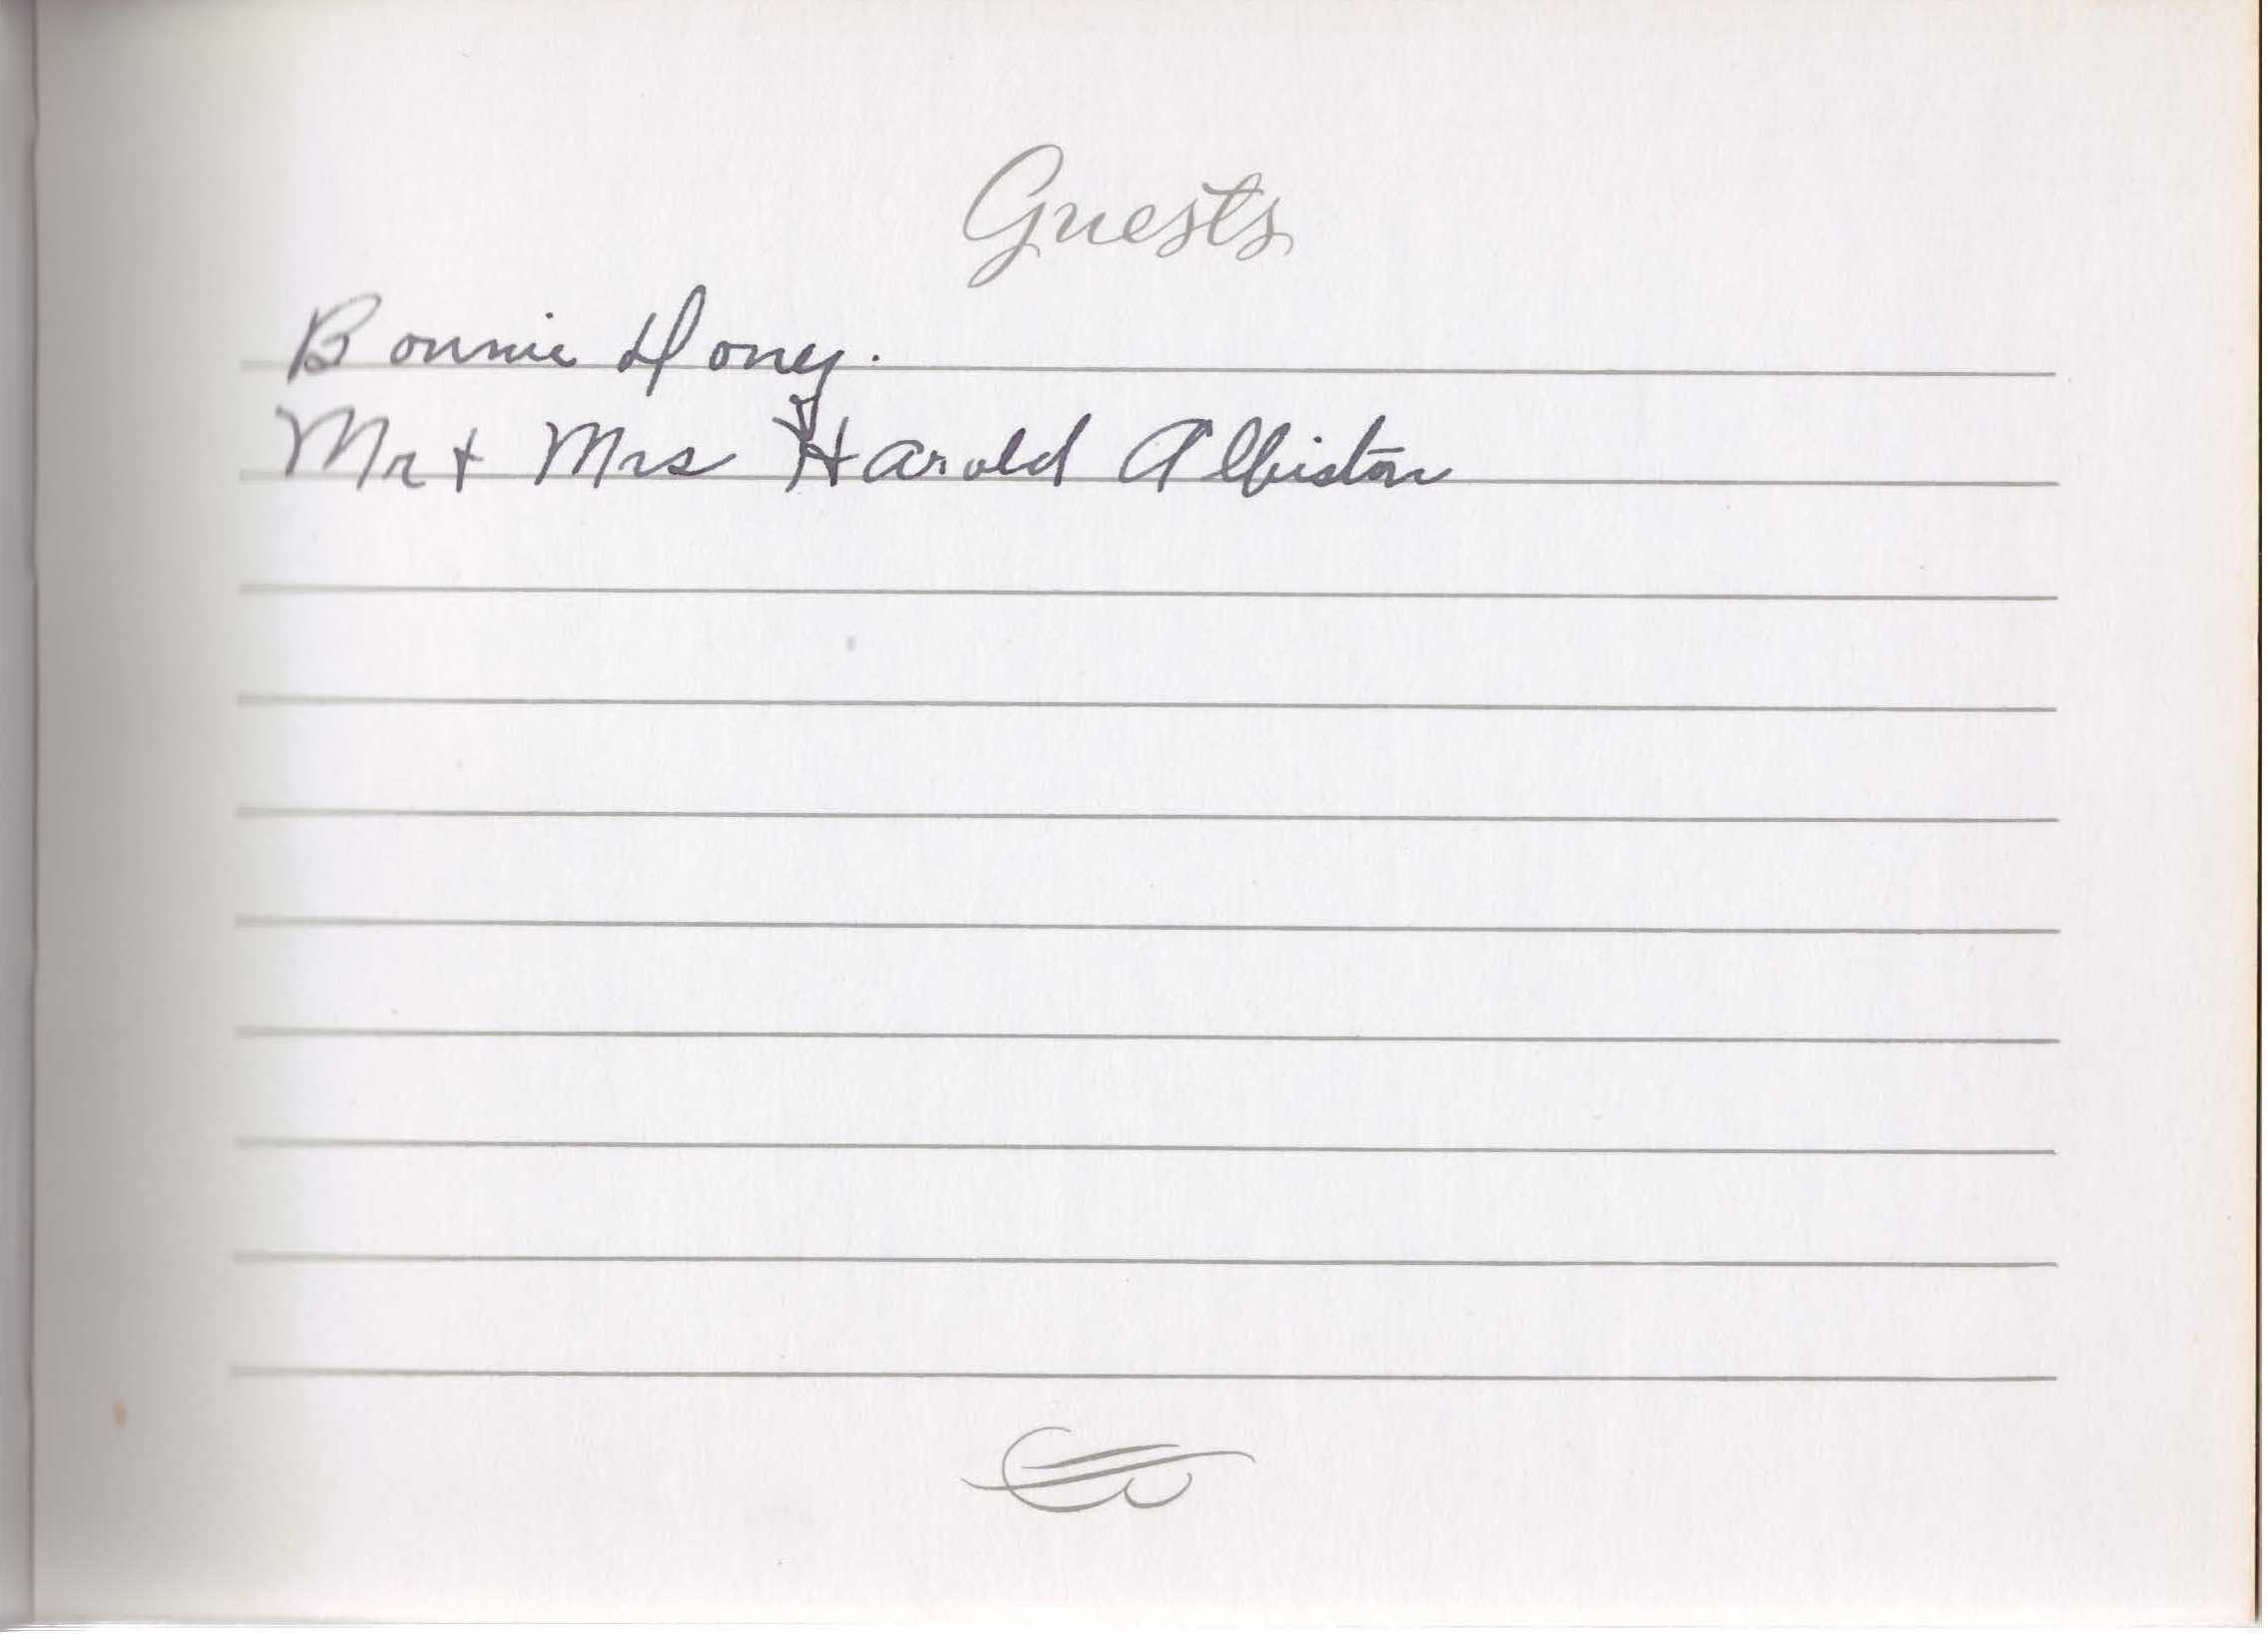 Guests
Bonnie Honey.
Mr + Mrs Harold Albiston